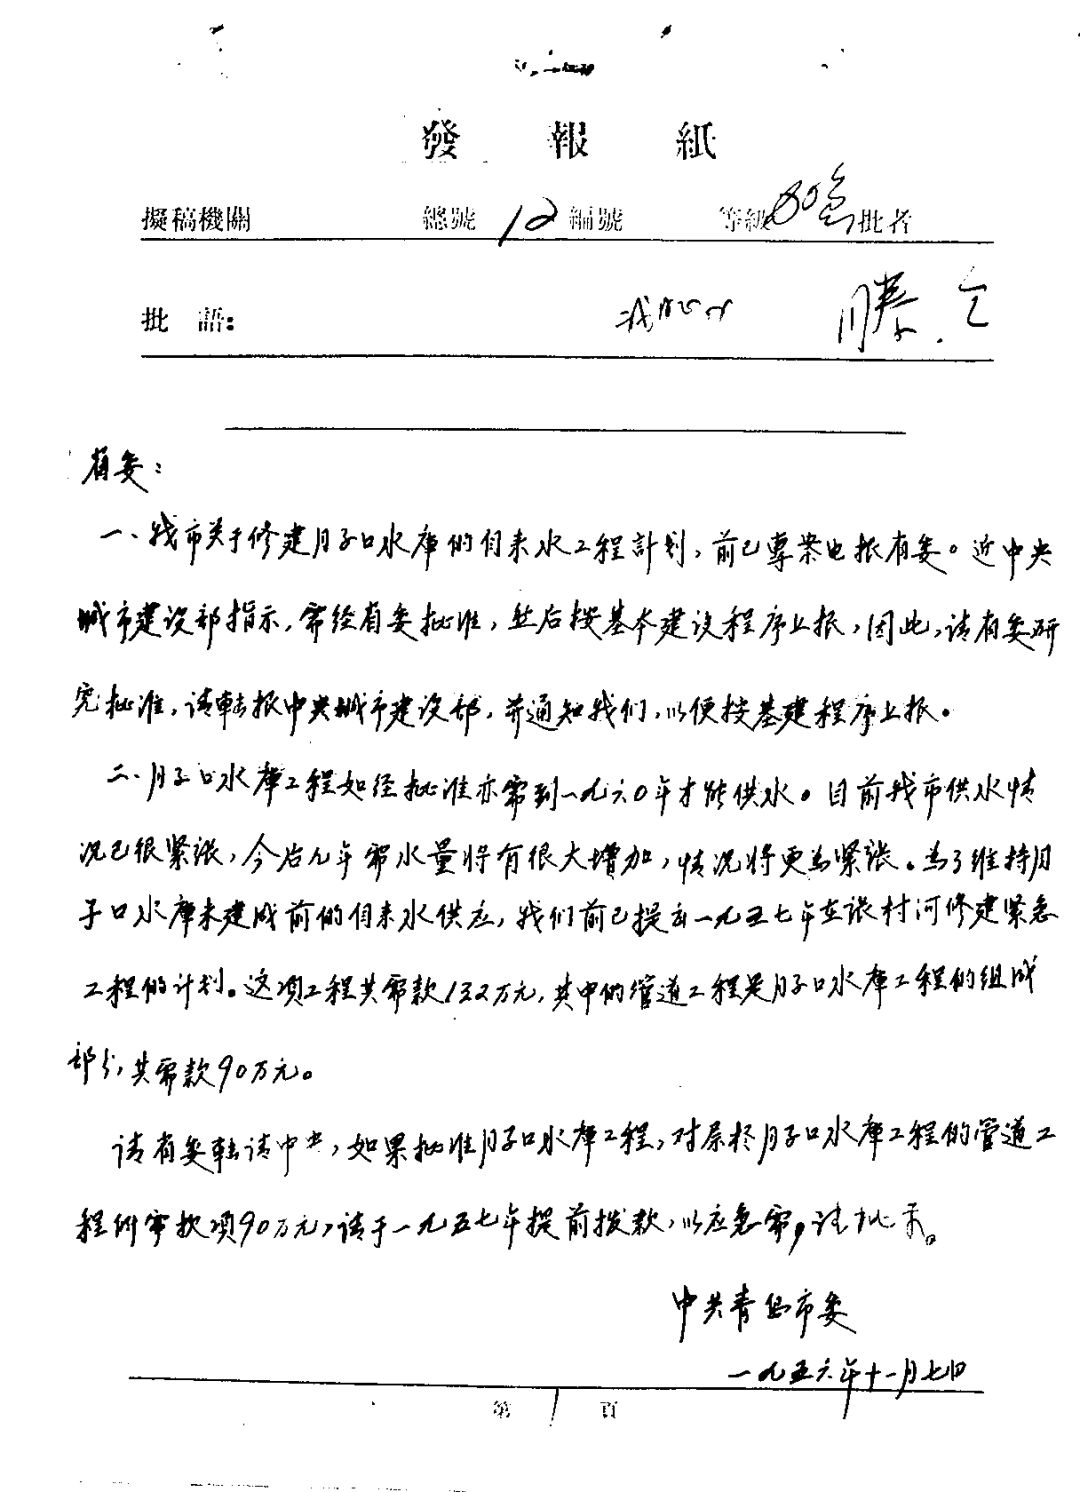 發報紙
擬稿機關 總號 12 編號 等級 批者
批語： 滕.
省委：
一、我市关于修建月子口水庫的自来水工程計划，前已專案电报省委。近中央
城市建设部指示，需经省委批准，然后按基本建设程序上报，因此，请省委研
究批准，请転报中央城市建设部，并通知我们，以便按基建程序上报。
二、月子口水庫工程如经批准亦需到一九六0年才能供水。目前我市供水情
况已很緊張，今后几年需水量将有很大增加，情况将更為緊張。為了维持月
子口水庫未建成前的自来水供应，我们前已提出一九五七年在張村河修建緊急
工程的计划。这项工程共需款132万元，其中的管道工程是月子口水庫工程的组成
部分，共需款90万元。
请省委転请中央，如果批准月子口水庫工程，对属於月子口水庫工程的管道工
程所需款项90万元，请于一九五七年提前拨款，以应急需，请批示。
中共青岛市委
一九五六年十一月七日
第1頁